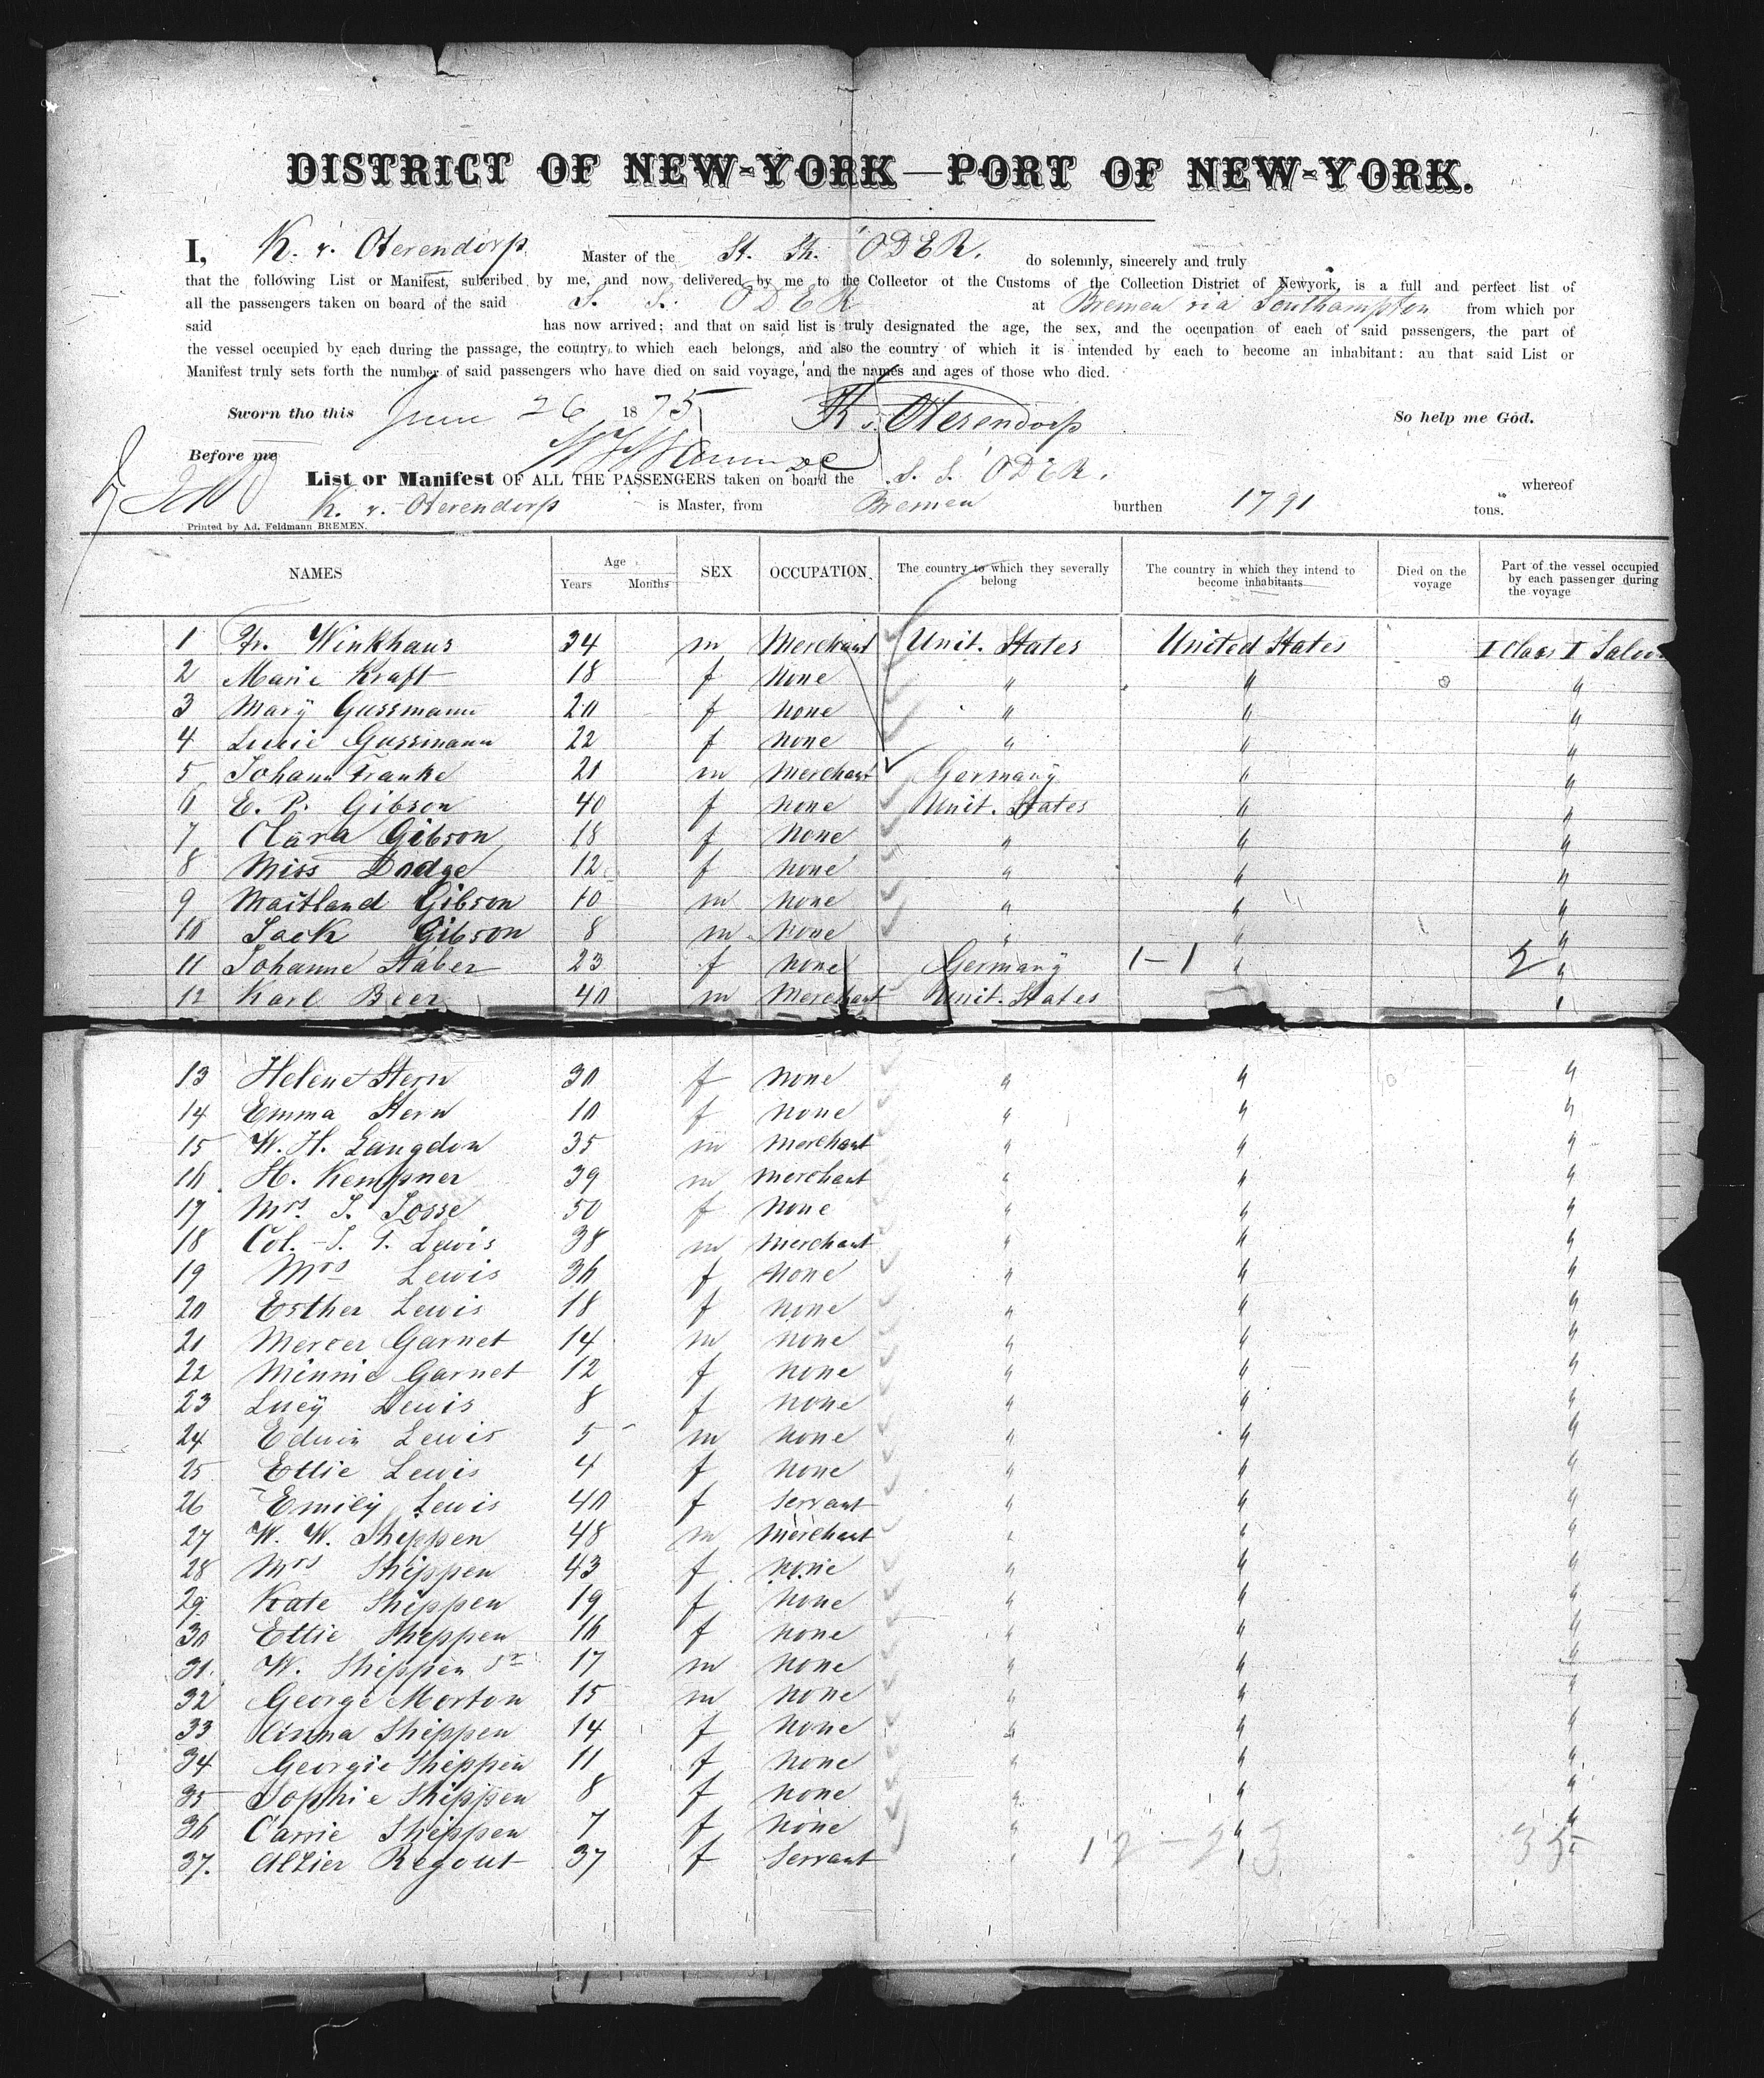 DISTRICT OF NEW-YORK—PORT OF NEW-YORK.
I, K. v. Oterendorp Master of the St. Sh. "ODER. do solemnly, sincerely and truly
that the following List or Manifest, subcribed by me, and now delivered by me to the Collector ot the Customs of the Collection District of Newyork, is a full and perfect list of
all the passengers taken on board of the said S. S. ODER at Bremen via Southampton from which por
said has now arrived; and that on said list is truly designated the age, the sex, and the occupation of each of said passengers, the part of
the vessel occupied by each during the passage, the country to which each belongs, and also the country of which it is intended by each to become an inhabitant: an that said List or
Manifest truly sets forth the number of said passengers who have died on said voyage, and the names and ages of those who died.
Sworn tho this June 26 1875 K. v. Oterendorp So help me God.
Before me
List or Manifest OF ALL THE PASSENGERS taken on board the S. S. ODER. whereof
K. v. Oterendorp is Master, from Bremen burthen 1791 tons.
Printed by Ad. Feldmann BREMEN.
NAMES Age Years Months SEX OCCUPATION. The country to which they severally belong The country in which they intend to become inhabitants Died on the voyage Part of the vessel occupied by each passenger during the voyage
1 Fr. Winkhaus 34 m Merchant Unit. States United States I Class I Saloon
2 Marie Kraft 18 f None " " "
3 Mary Gussmann 20 f none " " "
4 Lucie Gussmann 22 f none " " "
5 Johann Franke 21 m Merchant Germany " "
6 E. P. Gibson 40 f none Unit. States " "
7 Clara Gibson 18 f None " " "
8 Miss Dodge 12 f none " " "
9 Maitland Gibson 10 m none " " "
10 Jack Gibson 8 m none " " "
11 Johanne Staber 23 f none Germany 1-1 " 2 "
12 Karl Beer 40 m Merchant Unit. States "
13 Helene Stern 30 f none " " "
14 Emma Stern 10 f none " " "
15 W. H. Langdon 35 m Merchant " " "
16 H. Kempner 39 m Merchant " " "
17 Mrs. J. Josse 50 f none " " "
18 Col. J. T. Lewis 38 m Merchant " " "
19 Mrs Lewis 36 f none " " "
20 Esther Lewis 18 f none " " "
21 Mercer Garnet 14 m none " " "
22 Minnie Garnet 12 f none " " "
23 Lucy Lewis 8 f none " " "
24 Edwin Lewis 5 m none " " "
25 Ettie Lewis 4 f none " " "
26 Emily Lewis 40 f Servant " " "
27 W. W. Shippen 48 m Merchant " " "
28 Mrs Shippen 43 f none " " "
29 Kate Shippen 19 f none " " "
30 Ettie Shippen 16 f none " " "
31. W. Shippen Jr 17 m none " " "
32 George Morton 15 m none " " "
33 Anna Shippen 14 f none " " "
34 Georgie Shippen 11 f none " " "
35 Sophie Shippen 8 f none " " "
36 Carrie Shippen 7 f none " " "
37. Regout 37 f Servant " 12-23 " 35 "